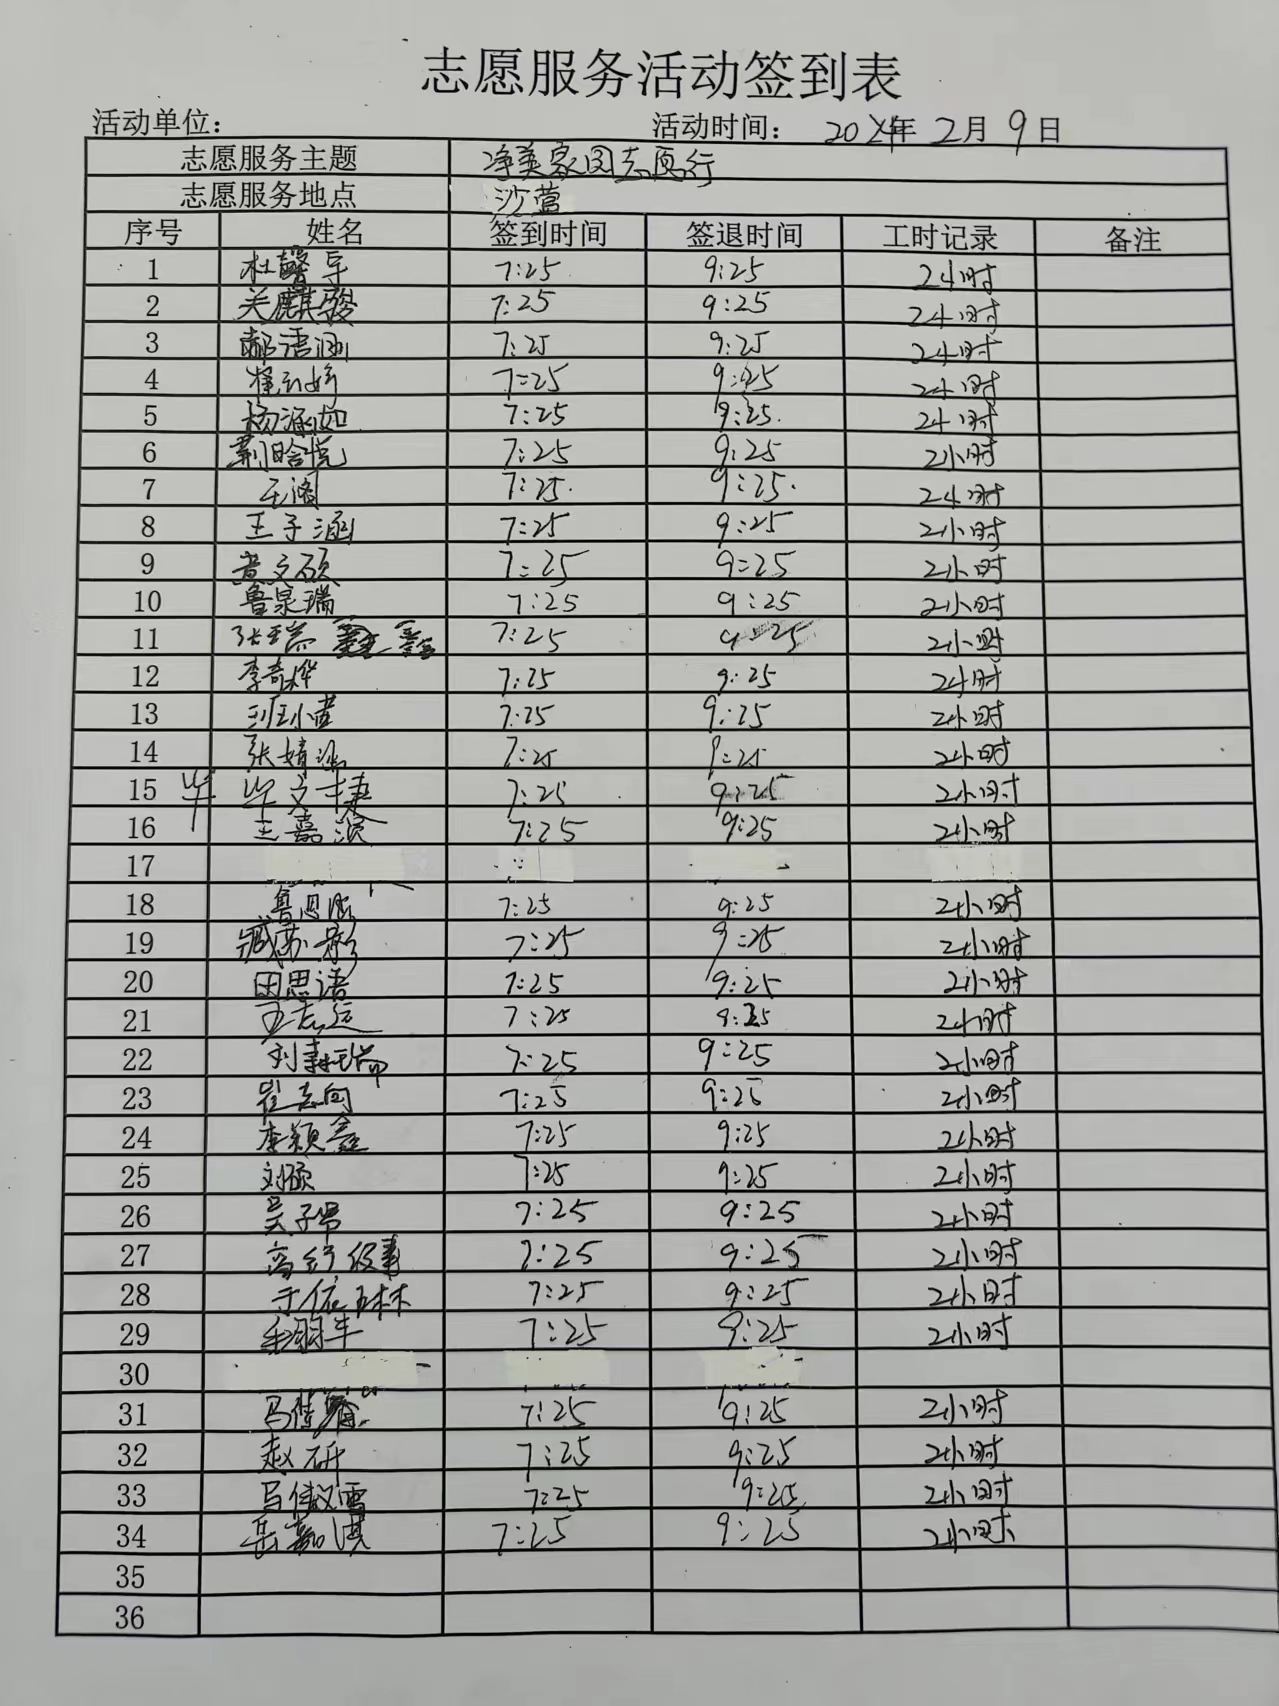 志愿服务活动签到表
活动单位: 活动时间: 2024年 2月 9日
志愿服务主题 净美家园志愿行
志愿服务地点 沙营
序号 姓名 签到时间 签退时间 工时记录 备注
1 杜馨 7:25 9:25 2小时
2 关麒骏 7:25 9:25 2小时
3 郝语涵 7:25 9:25 2小时
4 7:25 9:25 2小时
5 杨涵如 7:25 9:25 2小时
6 荆晗悦 7:25 9:25 2小时
7 7:25 9:25 2小时
8 王子涵 7:25 9:25 2小时
9 黄文硕 7:25 9:25 2小时
10 鲁泉瑞 7:25 9:25 2小时
11 张瑞鑫 7:25 9:25 2小时
12 李奇烨 7:25 9:25 2小时
13 7:25 9:25 2小时
14 张婧 7:25 9:25 2小时
15 毕 毕文捷 7:25 9:25 2小时
16 王嘉滨 7:25 9:25 2小时
17
18 鲁思 7:25 9:25 2小时
19 臧苏影 7:25 9:25 2小时
20 田思语 7:25 9:25 2小时
21 王志远 7:25 9:25 2小时
22 刘 瑞 7:25 9:25 2小时
23 崔志向 7:25 9:25 2小时
24 李颖鑫 7:25 9:25 2小时
25 刘硕 7:25 9:25 2小时
26 吴子 7:25 9:25 2小时
27 高 7:25 9:25 2小时
28 于依琳 7:25 9:25 2小时
29 7:25 9:25 2小时
30
31 马佳 7:25 9:25 2小时
32 赵研 7:25 9:25 2小时
33 马 雪 7:25 9:25 2小时
34 岳嘉淇 7:25 9:25 2小时
35
36